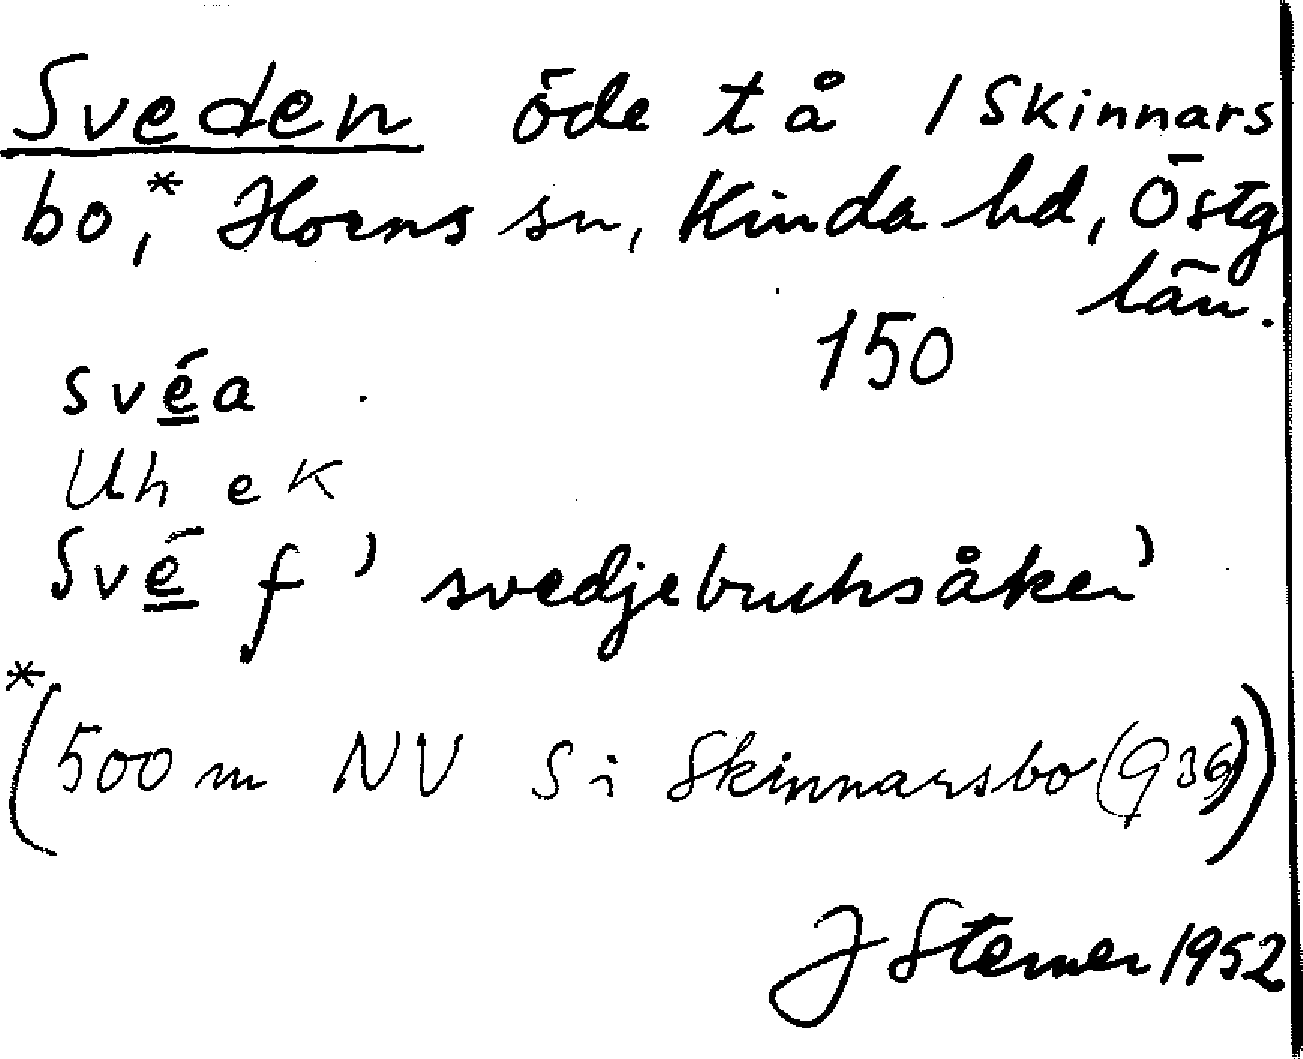 Sveden öde tå / Skinnars
bo,* Horns sn, Kinda hd, Östg
län.
150
svéa
Uh ek
Své f ' svedjebruksåker'
*(500 m NV S i Skinnarsbo (936))
J Sterner 1952